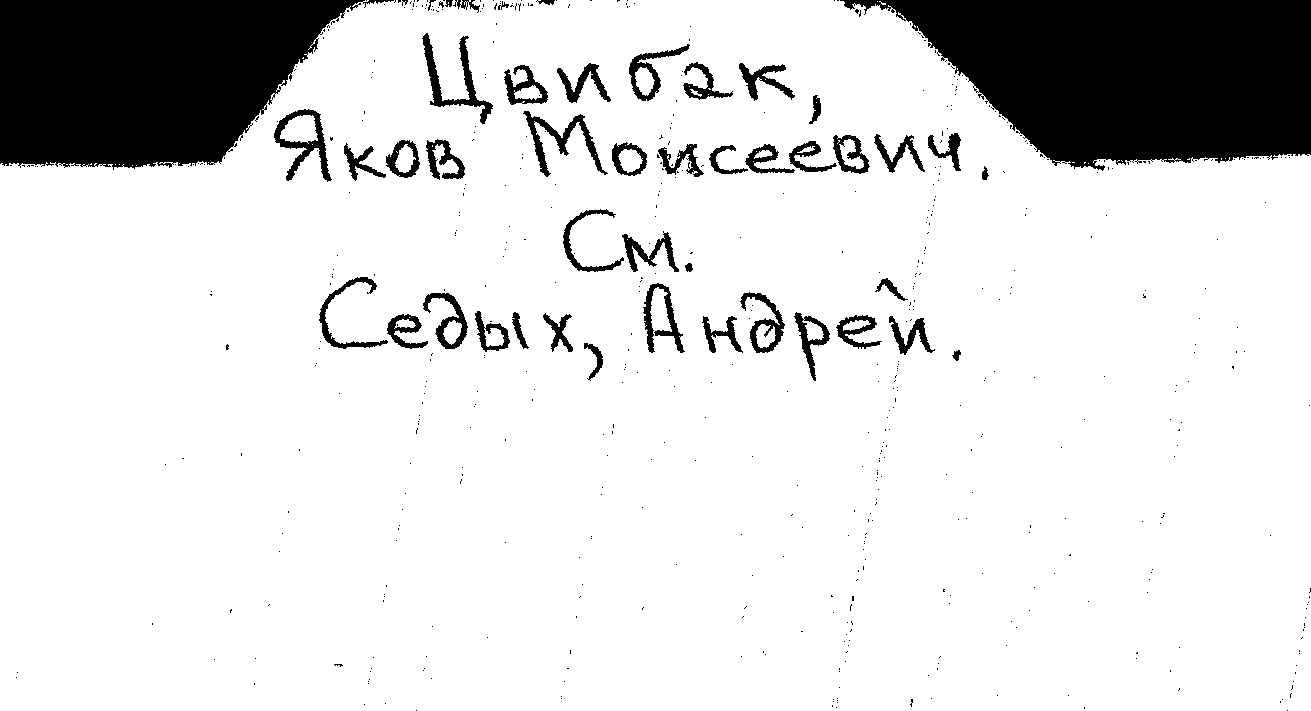 Цвибак,
Яков Моисеевич.
См.
Седых, Андрей.